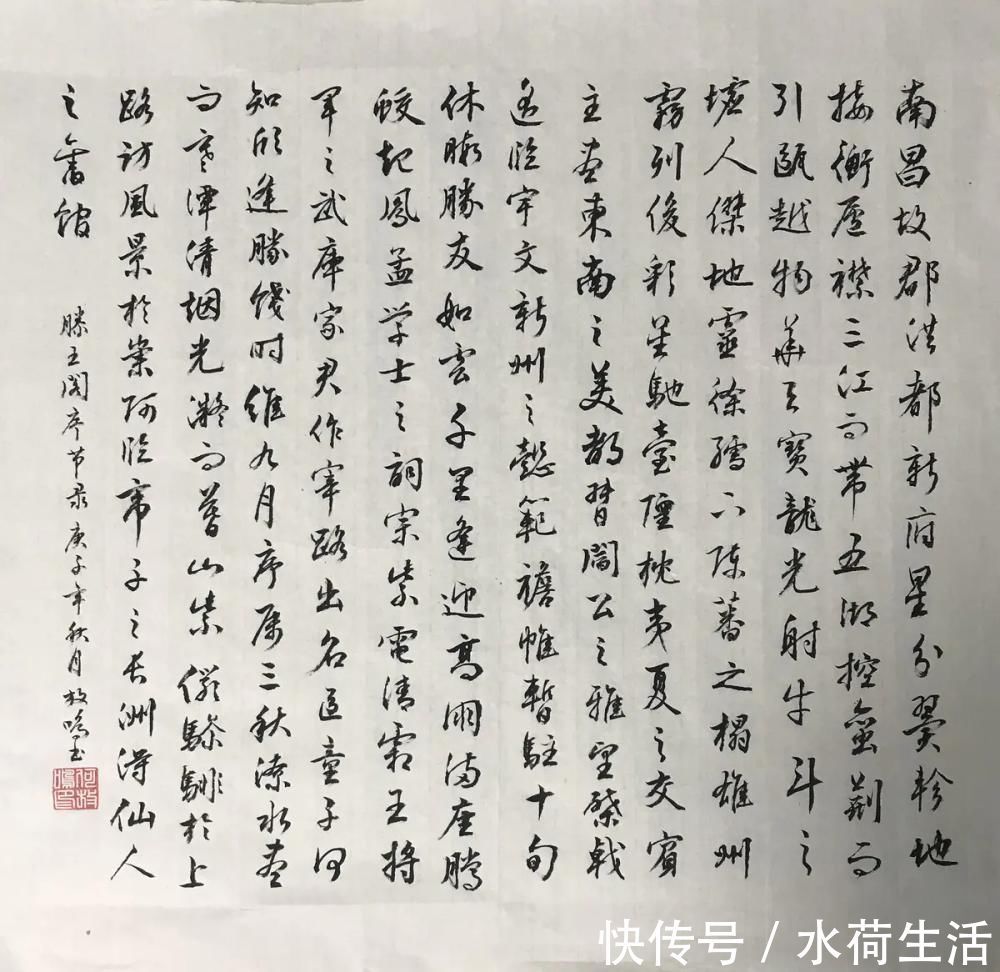 南昌故郡洪都新府星分翼轸地
接衡廬襟三江而带五湖控蛮荆而
引瓯越物華天寶龍光射牛斗之
墟人傑地靈徐孺下陈蕃之榻雄州
霧列俊彩星馳臺隍枕夷夏之交賓
主尽東南之美都督閻公之雅望棨戟
遙临宇文新州之懿範襜帷暫駐十旬
休暇勝友如雲千里逢迎高朋满座腾
蛟起鳳孟学士之詞宗紫電清霜王将
军之武库家君作宰路出名区童子何
知躬逢勝餞时维九月序属三秋潦水尽
而寒潭清烟光凝而暮山紫儼骖騑於上
路访風景於崇阿临帝子之长洲得仙人
之舊馆
滕王阁序节录庚子年秋月牧鸣书
快传号 / 水荷生活